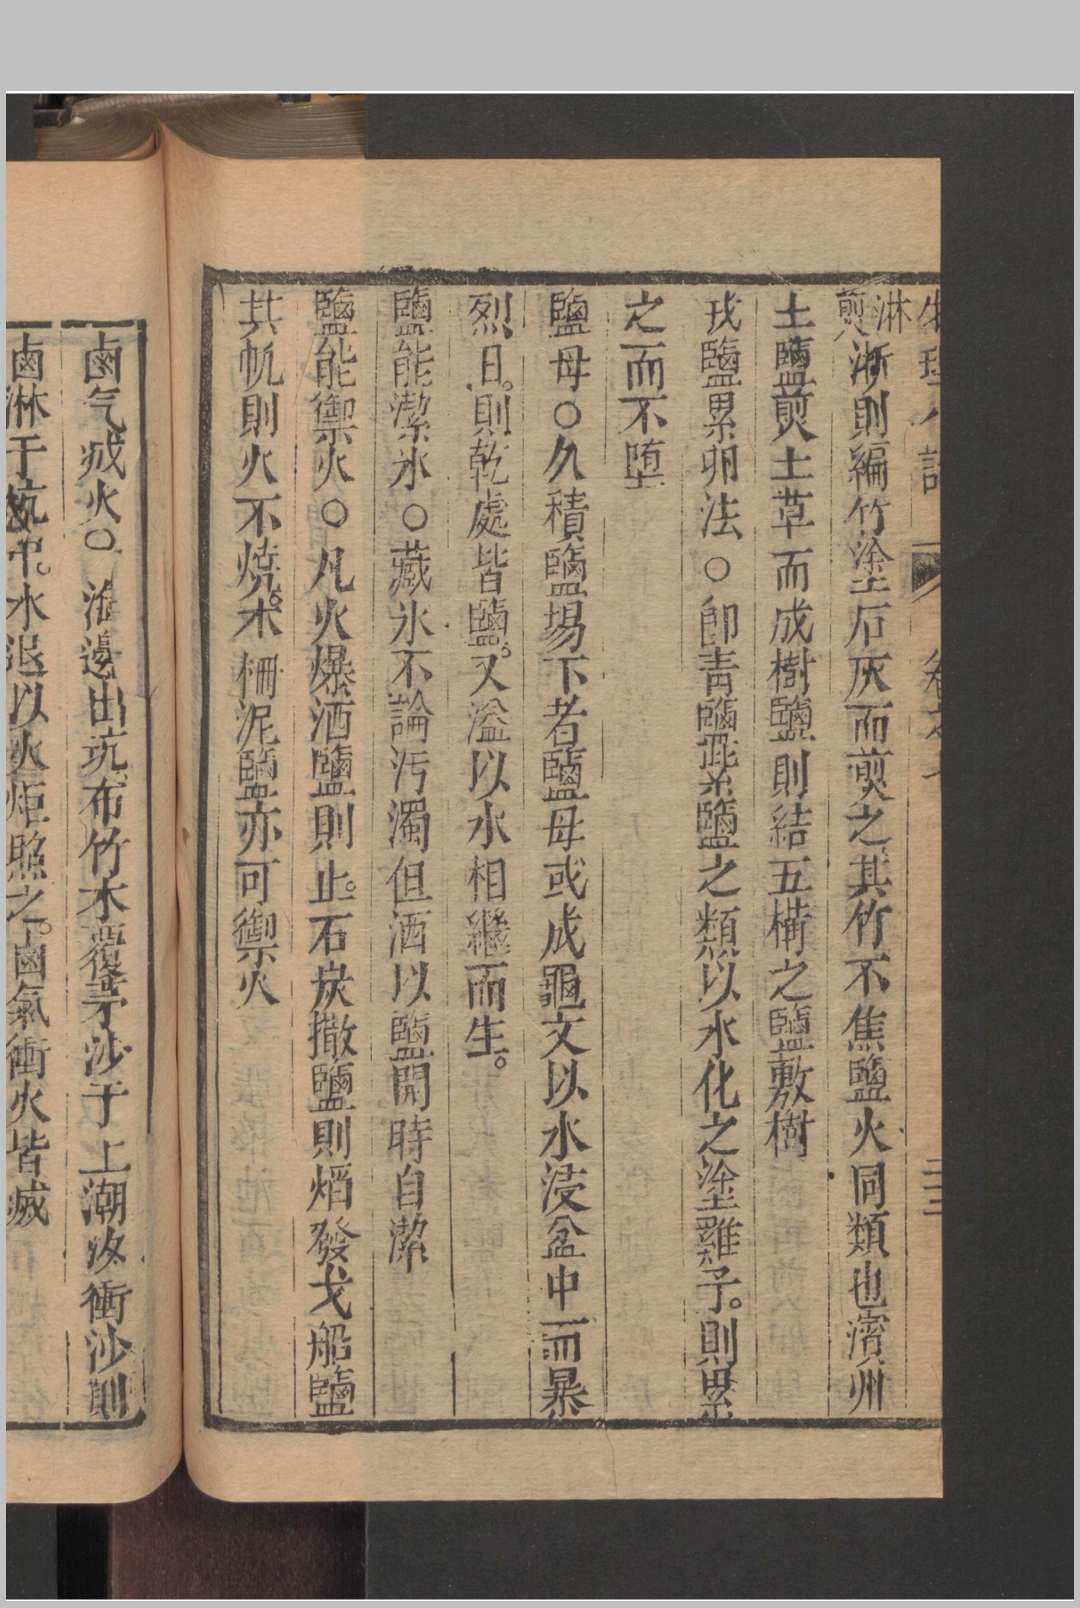 物理小識 卷之七 三三
淋煎
浙則編竹塗石灰而煎之其竹不焦鹽火同類也濱州
土鹽煎土草而成樹鹽則結五構之鹽敷樹
戎鹽累卵法○卽青鹽混累鹽之類以水化之塗雞子。則累
之而不堕
鹽母○久積鹽場下者鹽母或成龜文以水浸盆中而暴
烈日。則乾處皆鹽。又溢以水相繼而生。
鹽能潔氷○藏氷不論污濁但洒以鹽開時自潔
鹽能禦火○凡火爆洒鹽則止。石炭撒鹽則熖發戈船鹽
其帆則火不焼。木柵泥鹽亦可禦火
鹵气㓕火○海邊出坑布竹木覆茅沙于上潮汐衝沙則
鹵淋于坑中。水退以火炬照之。鹵氣衝火皆㓕